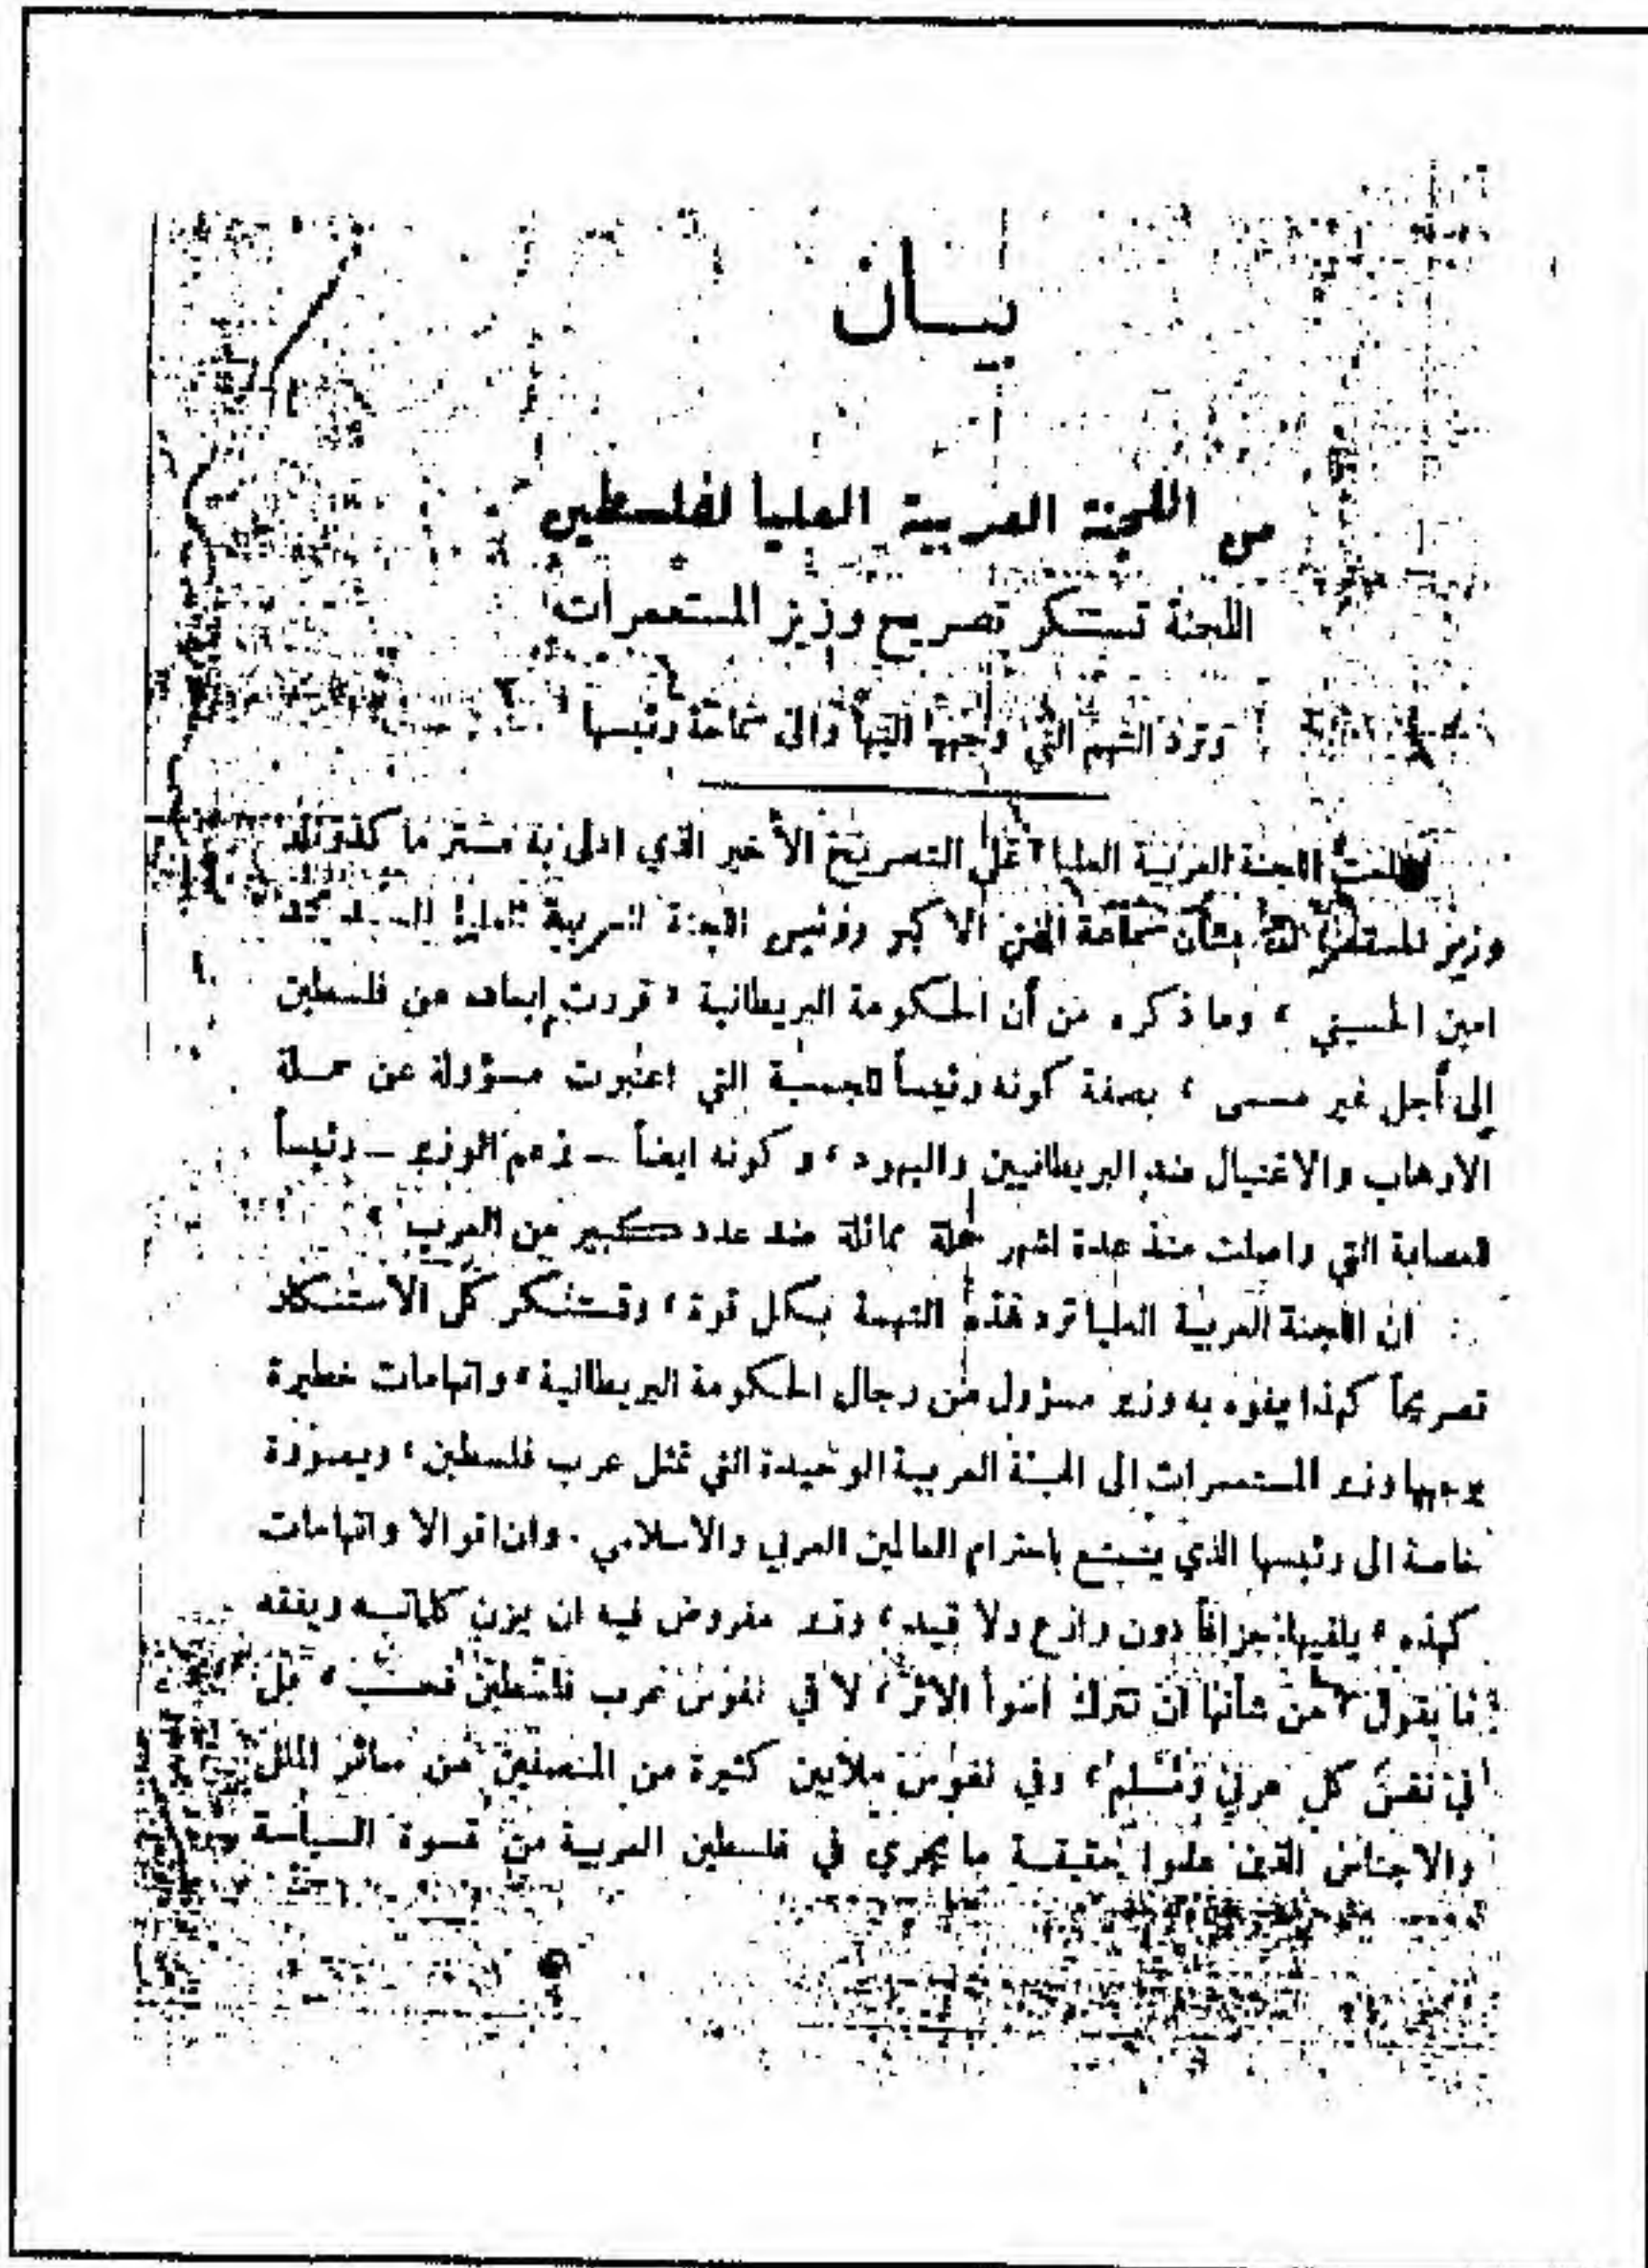 بيان
من اللجنة العربية العليا لفلسطين
اللجنة تستنكر تصريح وزير المستعمرات
وترد التهم التي وجهها اليها والى سماحة رئيسها
اطلعت اللجنة العربية العليا على التصريح الأخير الذي ادلى به مستر ما كدونلد
وزير المستعمرات بشأن سماحة المفتي الاكبر ورئيس اللجنة العربية العليا السيد محمد
امين الحسيني ، وما ذكره من أن الحكومة البريطانية « قررت إبعاده عن فلسطين
إلى أجل غير مسمى ، بصفة كونه رئيساً للجمعية التي اعتبرت مسؤولة عن حملة
الارهاب والاغتيال ضد البريطانيين واليهود ، وكونه ايضاً – زعم الوزير – رئيساً
للعصابة التي واصلت منذ عدة اشهر حملة مماثلة ضد عدد كبير من العرب »
ان اللجنة العربية العليا ترد هذه التهمة بكل قوة ، وتستنكر كل الاستنكار
تصريحاً كهذا يفوه به وزير مسؤول من رجال الحكومة البريطانية ، واتهامات خطيرة
يوجهها وزير المستعمرات الى اللجنة العربية الوحيدة التي تمثل عرب فلسطين ، وبصورة
خاصة الى رئيسها الذي يتمتع باحترام العالمين العربي والاسلامي . وان اقوالا واتهامات
كهذه ، يلقيها جزافاً دون وازع ولا قيد ، وزير مفروض فيه ان يزن كلماته ويفقه
ما يقول ، من شأنها ان تترك أسوأ الاثر ، لا في نفوس عرب فلسطين فحسب ، بل
في نفس كل عربي ومسلم ، وفي نفوس ملايين كثيرة من المنصفين من سائر الملل
والاجناس الذين علموا حقيقة ما يجري في فلسطين العربية من قسوة السياسة